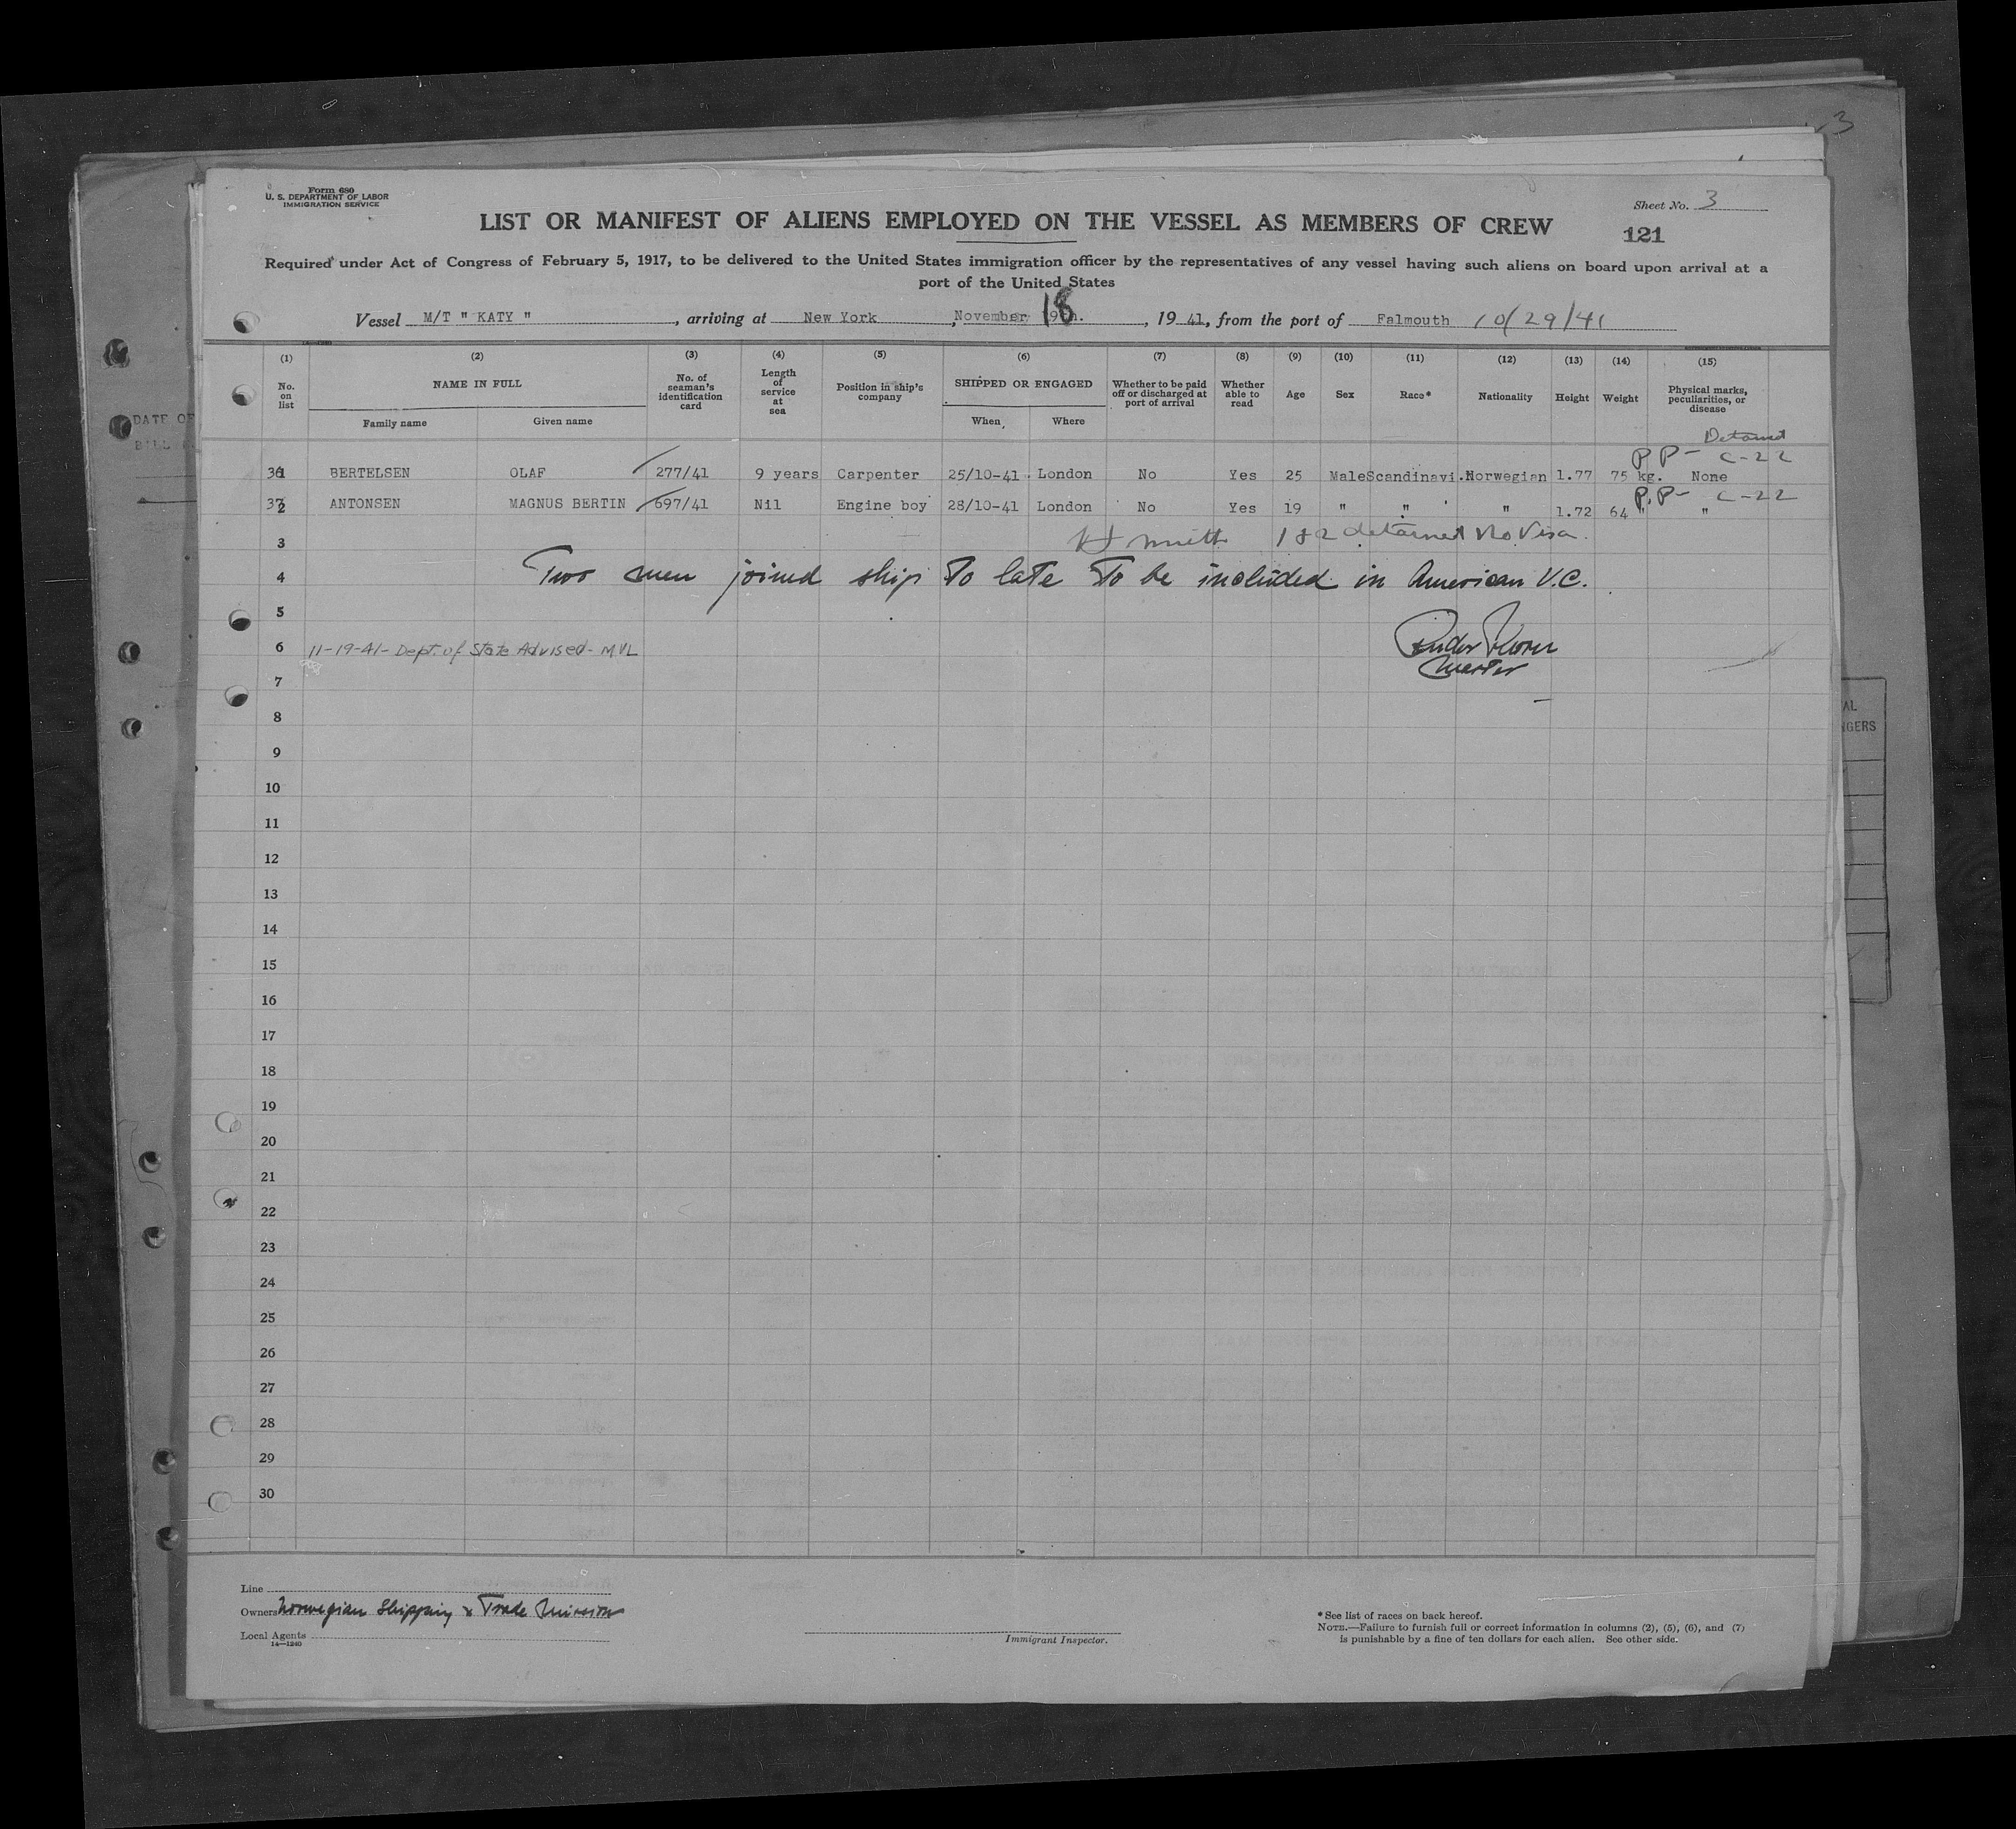 3
Form 680
U. S. DEPARTMENT OF LABOR
IMMIGRATION SERVICE
Sheet No. 3
LIST OR MANIFEST OF ALIENS EMPLOYED ON THE VESSEL AS MEMBERS OF CREW
121
Required under Act of Congress of February 5, 1917, to be delivered to the United States immigration officer by the representatives of any vessel having such aliens on board upon arrival at a
port of the United States
Vessel M/T " KATY ", arriving at New York, November 18, 1941, from the port of Falmouth 10/29/41
(1) (2) (3) (4) (5) (6) (7) (8) (9) (10) (11) (12) (13) (14) (15)
No. on list NAME IN FULL No. of seaman's identification card Length of service at sea Position in ship's company SHIPPED OR ENGAGED Whether to be paid off or discharged at port of arrival Whether able to read Age Sex Race* Nationality Height Weight Physical marks, peculiarities, or disease
Family name Given name When Where
Detained
PP- C-22
31 BERTELSEN OLAF 277/41 9 years Carpenter 25/10-41 London No Yes 25 Male Scandinavi. Norwegian 1.77 75 kg. None
P.P- C-22
32 ANTONSEN MAGNUS BERTIN 697/41 Nil Engine boy 28/10-41 London No Yes 19 " " " 1.72 64 " "
3 1 & 2 detained No Visa.
4 Two men joined ship To late To be included in American V.C.
5
6 11-19-41- Dept. of State Advised- MVL
Master
7
8
9
10
11
12
13
14
15
16
17
18
19
20
21
22
23
24
25
26
27
28
29
30
Line
Owners Norwegian Shipping & Trade Mission
Local Agents
14—1240
Immigrant Inspector.
*See list of races on back hereof.
NOTE.—Failure to furnish full or correct information in columns (2), (5), (6), and (7)
is punishable by a fine of ten dollars for each alien. See other side.
DATE OF